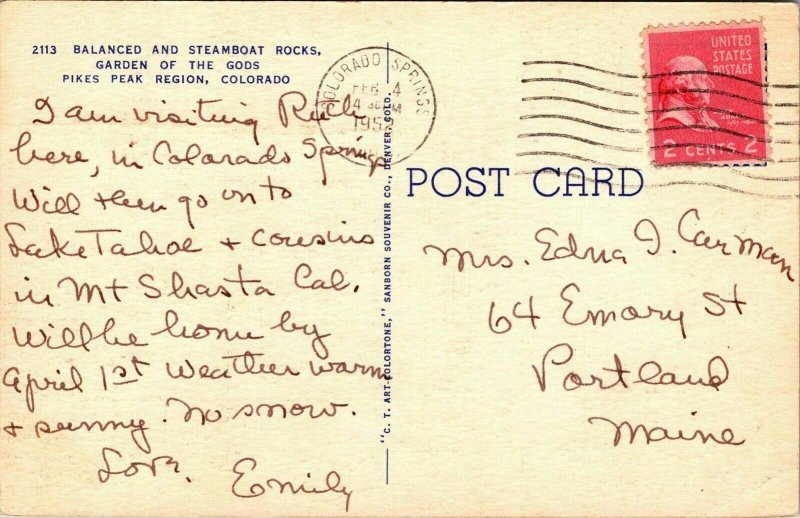 2113 BALANCED AND STEAMBOAT ROCKS,
GARDEN OF THE GODS
PIKES PEAK REGION, COLORADO
I am visiting Ruth
here, in Colorado Springs
Will then go on to
Lake Tahoe + cousins
in Mt Shasta Cal.
Will be home by
April 1st Weather warm
+ sunny. No snow.
Love.
Emily
"C. T. ART-COLORTONE," SANBORN SOUVENIR CO., DENVER, COLO.
COLORADO SPRINGS
FEB 4
UNITED
STATES
POSTAGE
2 CENTS 2
POST CARD
Mrs. Edna I. Carman
64 Emory St
Portland
Maine